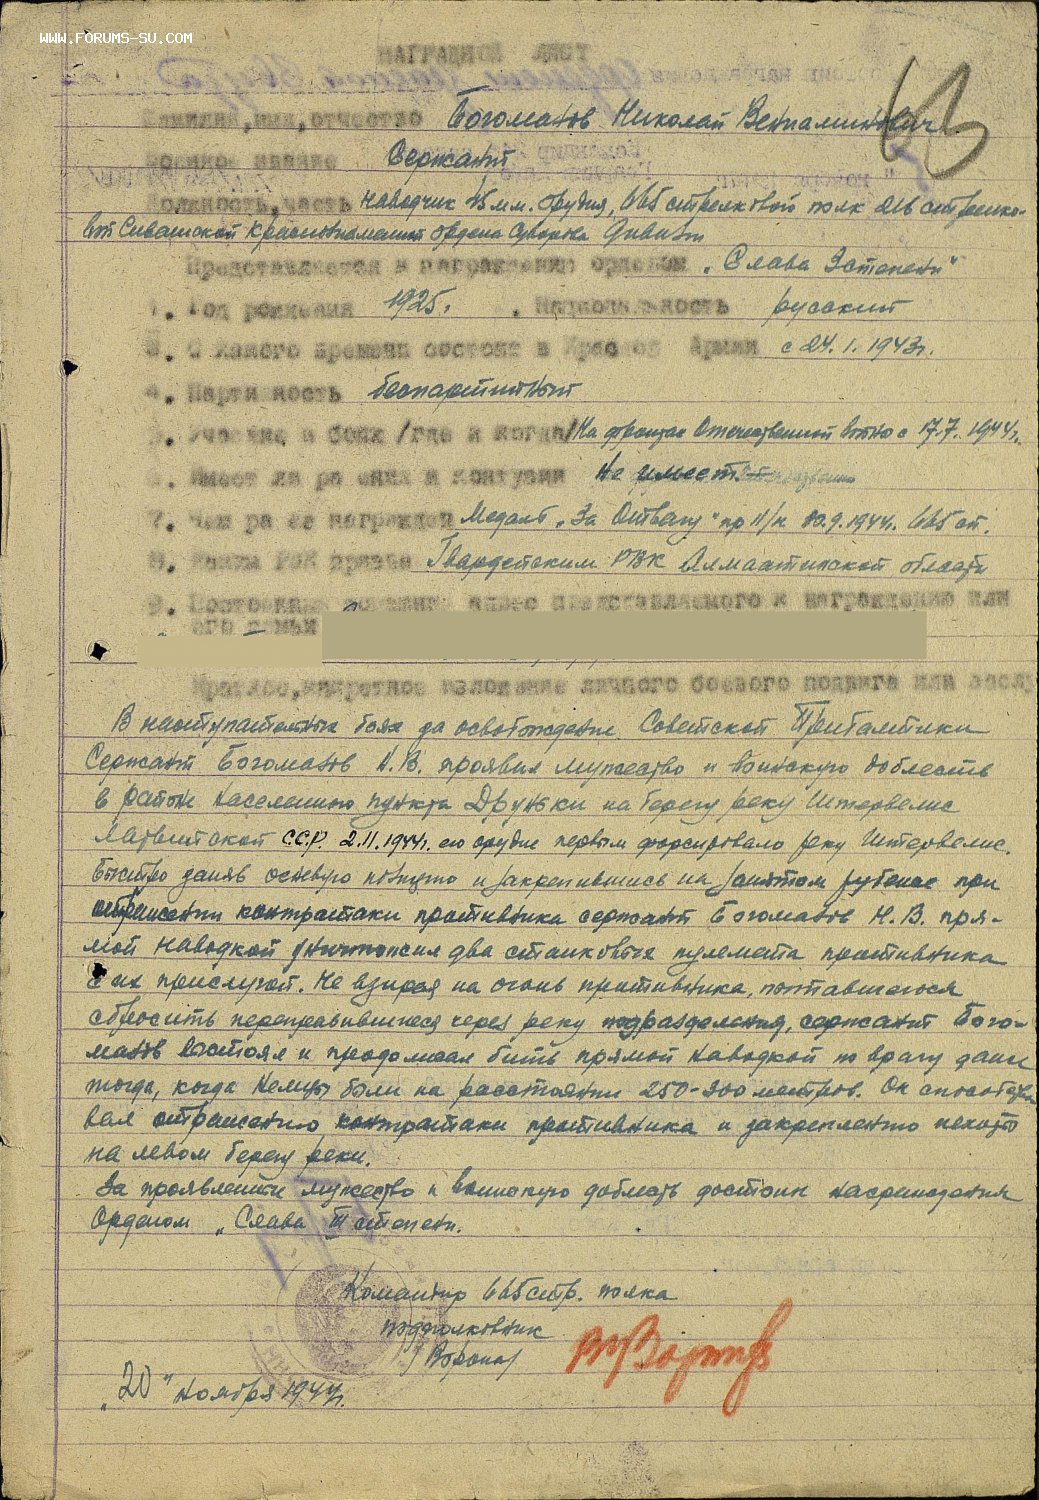 WWW.FORUMS-SU.COM
НАГРАДНОЙ ЛИСТ
Фамилия,имя,отчество Богоманов Николай Вениаминович
Военное звание Сержант
Должность,часть наводчик 45 м.м. орудия, 665 стрелковой полк 216 стрелко-
вой Сивашской Краснознаменной ордена Суворова дивизии
Представляется к награждению орденом „Слава 3 степени"
1. Год рождения 1925г. . Национальность русский
3. С какого времени состоит в Красной Армии с 24.1.1943г.
4. Партийность беспартийный
5. Участие в боях /где и когда/ На фронтах Отечественной войны с 17.7.1944г.
6. Имеет ли ранения и контузии Не имеет
7. Чем ранее награжден Медаль „За Отвагу" пр п/п 30.9.1944г. 665 сп.
8. Каким РВК призван Гвардейским РВК Алмаатинской области
9. Постоянный домашний адрес представляемого к награждению или
его семьи
Краткое,конкретное изложение личного боевого подвига или заслу
В наступательных боях за освобождение Советской Прибалтики
Сержант Богоманов Н.В. проявил мужество и воинскую доблесть
в районе населенного пункта Друньки на берегу реки Интервелис
Латвийской С.С.Р. 2.11.1944г. его орудие первым форсировало реку Интервелис.
Быстро заняв огневую позицию и закрепившись на занятом рубеже при
отражении контратаки противника сержант Богоманов Н.В. пря-
мой наводкой уничтожил два станковых пулемета противника
с их прислугой. Не взирая на огонь противника, пытавшегося
сбросить переправившиеся через реку подразделения, сержант Бого-
манов выстоял и продолжал бить прямой наводкой по врагу даже
тогда, когда немцы были на расстоянии 250-300 метров. Он способство
вал отражению контратаки противника и закреплению пехоты
на левом берегу реки.
За проявленные мужество и воинскую доблесть достоин награждения
Орденом „Слава III степени.
Командир 665 стр. полка
подполковник
„20" ноября 1944г.